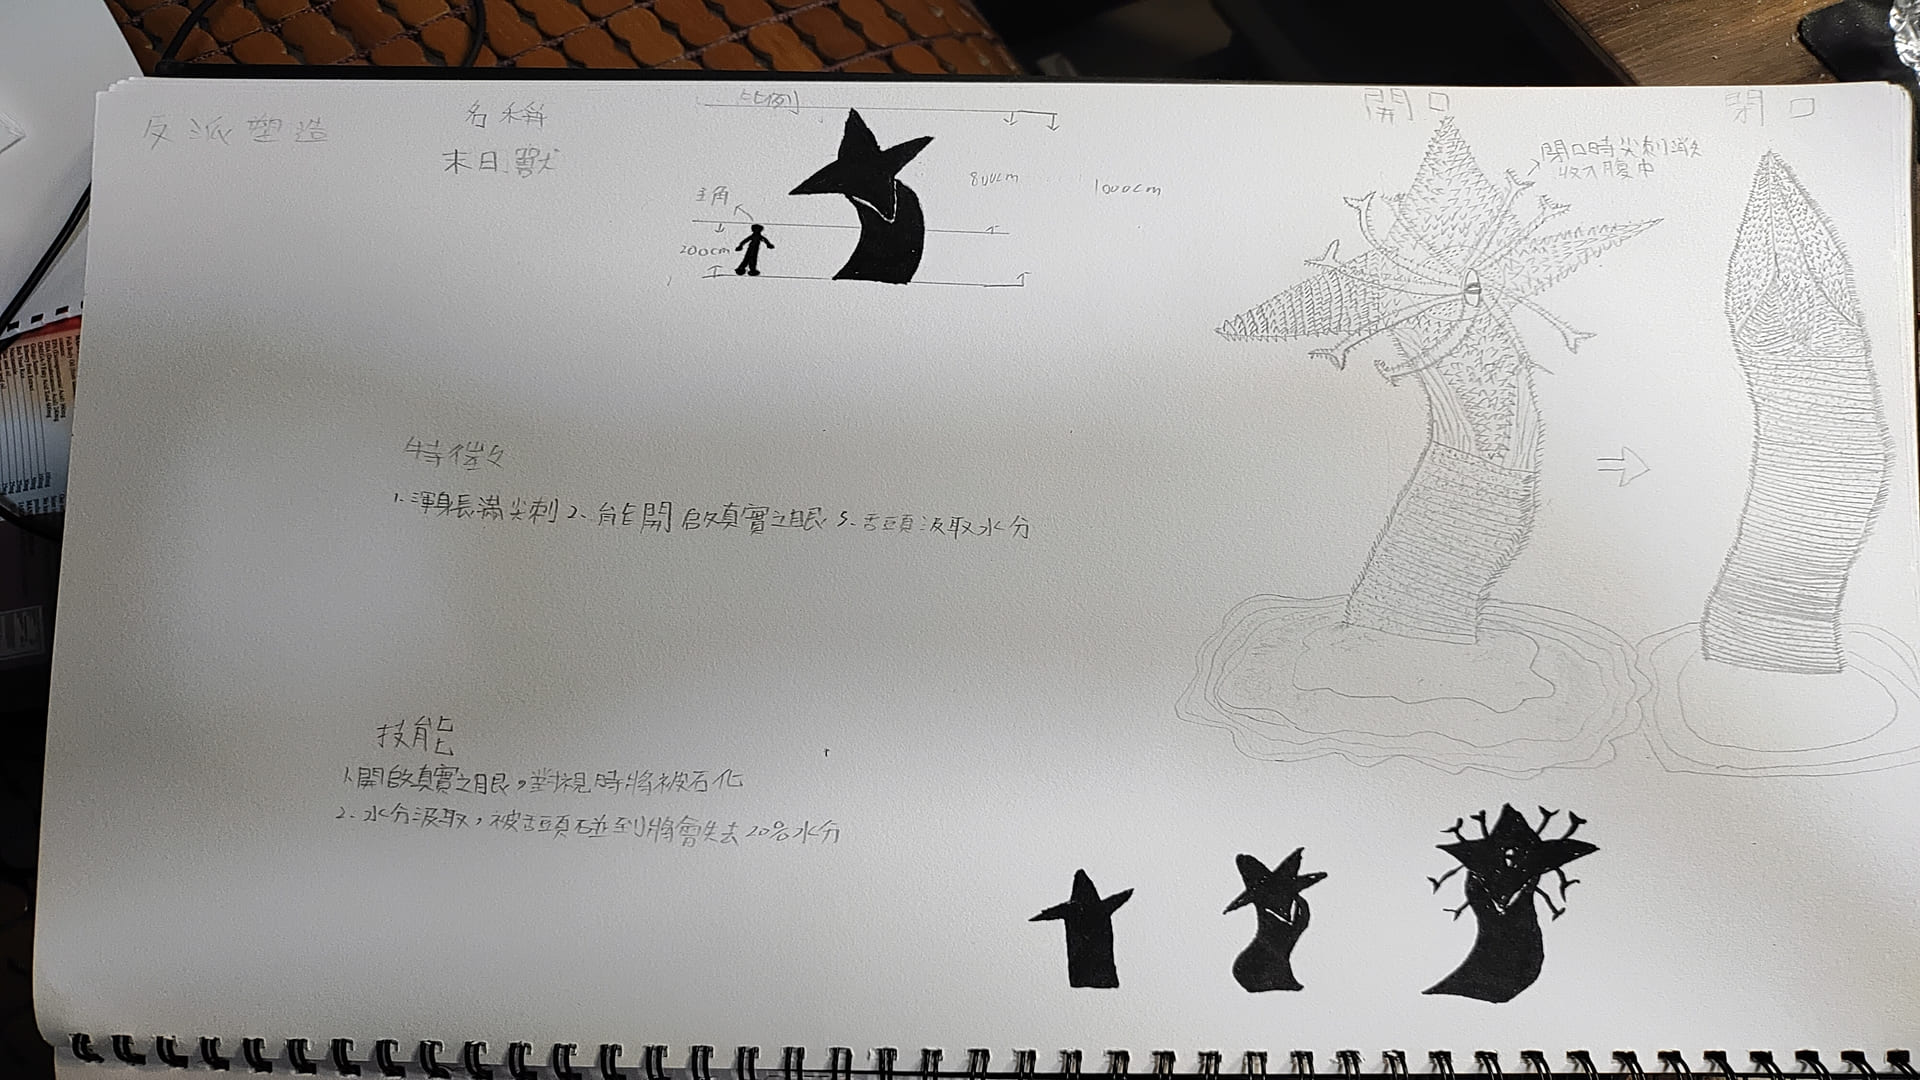 反派塑造
名稱
末日獸
比例
主角
200cm
800cm
1000cm
開口
閉口
閉口時尖刺
收入腹中
特徵
1. 渾身長滿尖刺 2. 能開啟真實之眼 3. 舌頭汲取水分
技能
1. 開啟真實之眼，對視時將被石化
2. 水分汲取，被舌頭碰到將會失去20%水分